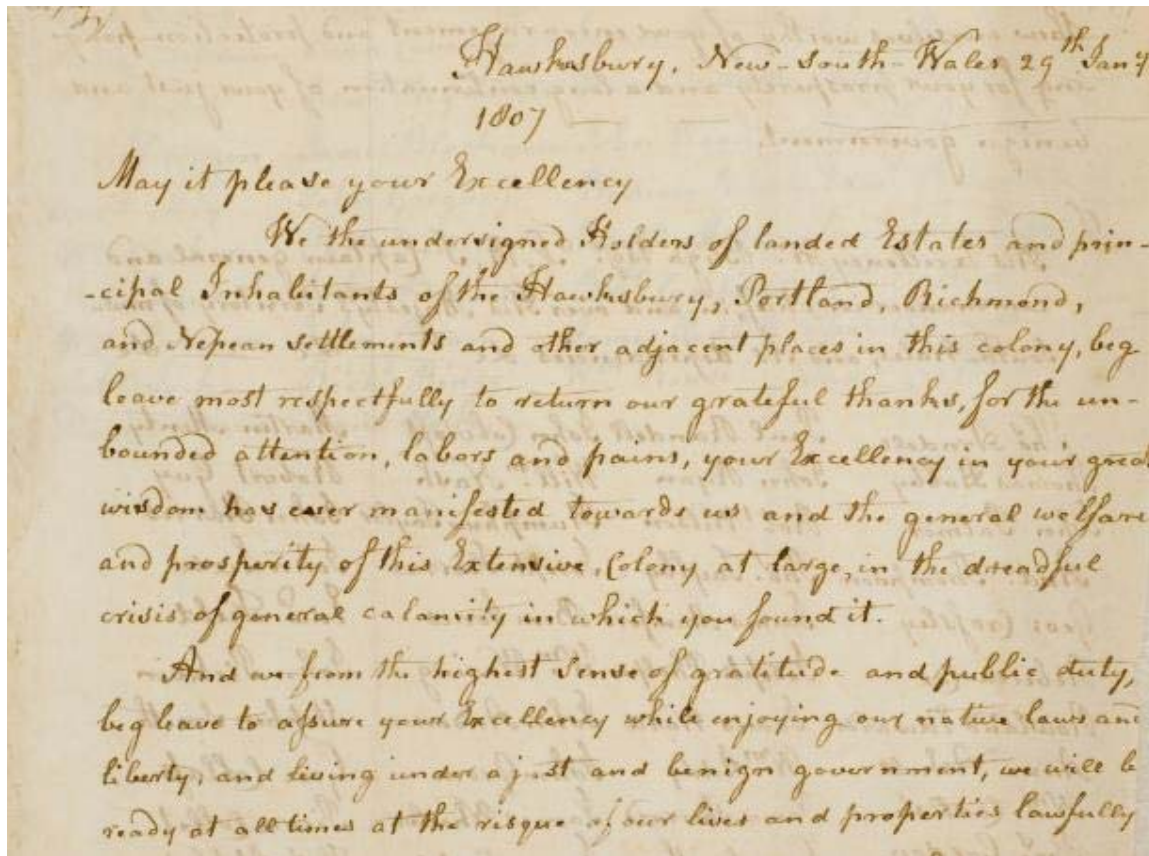 Hawksbury, New-South-Wales 29th Jany
1807
May it please your Excellency
We the undersigned Holders of landed Estates and prin-
-cipal Inhabitants of the Hawksbury, Portland, Richmond,
and Nepean settlements and other adjacent places in this colony, beg
leave most respectfully to return our grateful thanks, for the un-
bounded attention, labors and pains, your Excellency in your great
wisdom has ever manifested towards us and the general welfare
and prosperity of this Extensive, Colony at large, in the dreadful
crisis of general calamity in which you found it.
And we from the highest Sense of gratitude and public duty,
beg leave to assure your Excellency while enjoying our native laws and
liberty, and living under a just and benign government, we will be
ready at all times at the risque of our lives and properties lawfully